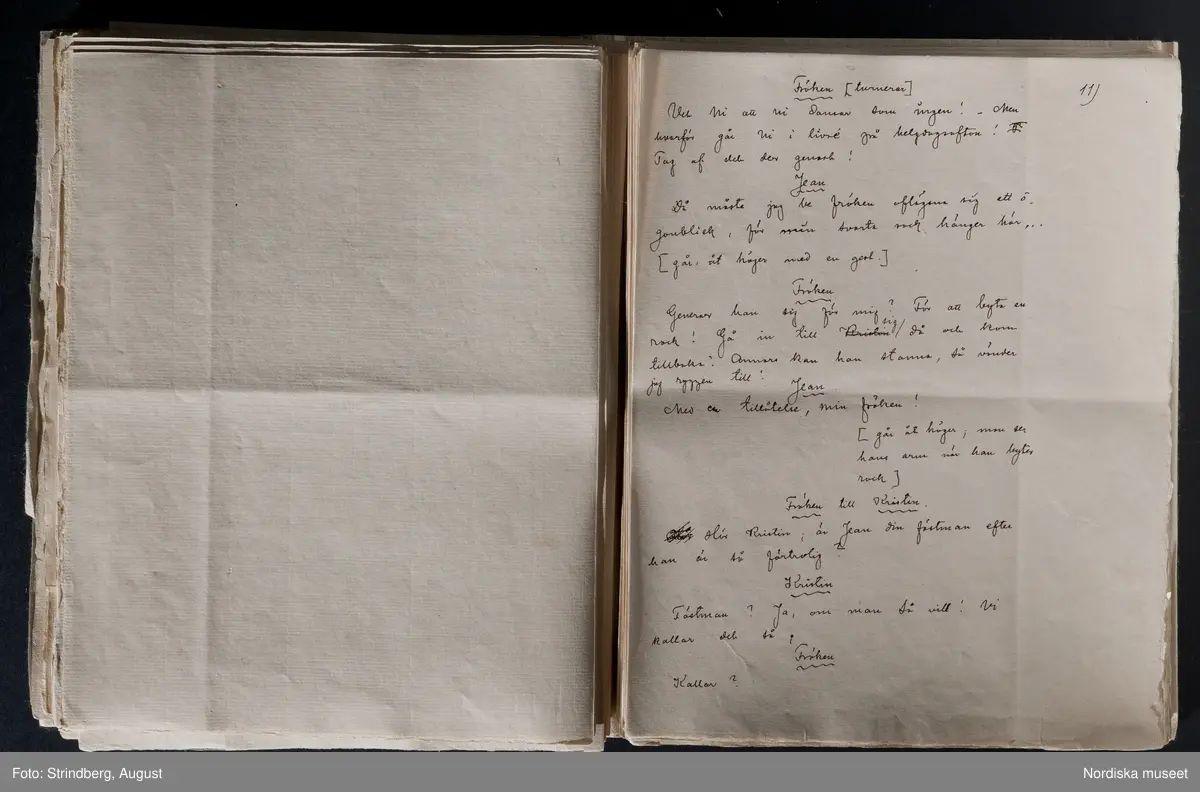 11)
Fröken [turnerar]
Vet Ni att ni dansar som ingen! – Men
hvarför går Ni i livré på helgdagsafton!
Tag af det der genast!
Jean
Då måste jag be fröken aflägsna sig ett ö-
gonblick, för min svarta rock hänger här,...
[går åt höger med en gest.]
Fröken
Generar han sig för mig? För att byta en
rock! Gå in till Kristin sig då och kom
tillbaka! Annars kan han stanna, så vänder
jag ryggen till!
Jean
Med er tillåtelse, min fröken!
[går åt höger; man ser
hans arm när han byter
rock]
Fröken till Kristin.
Hör Kristin; är Jean din fästman efter
han är så förtrolig?
Kristin
Fästman? Ja, om man så vill! Vi
kallar det så!
Fröken
Kallar?
Foto: Strindberg, August
Nordiska museet